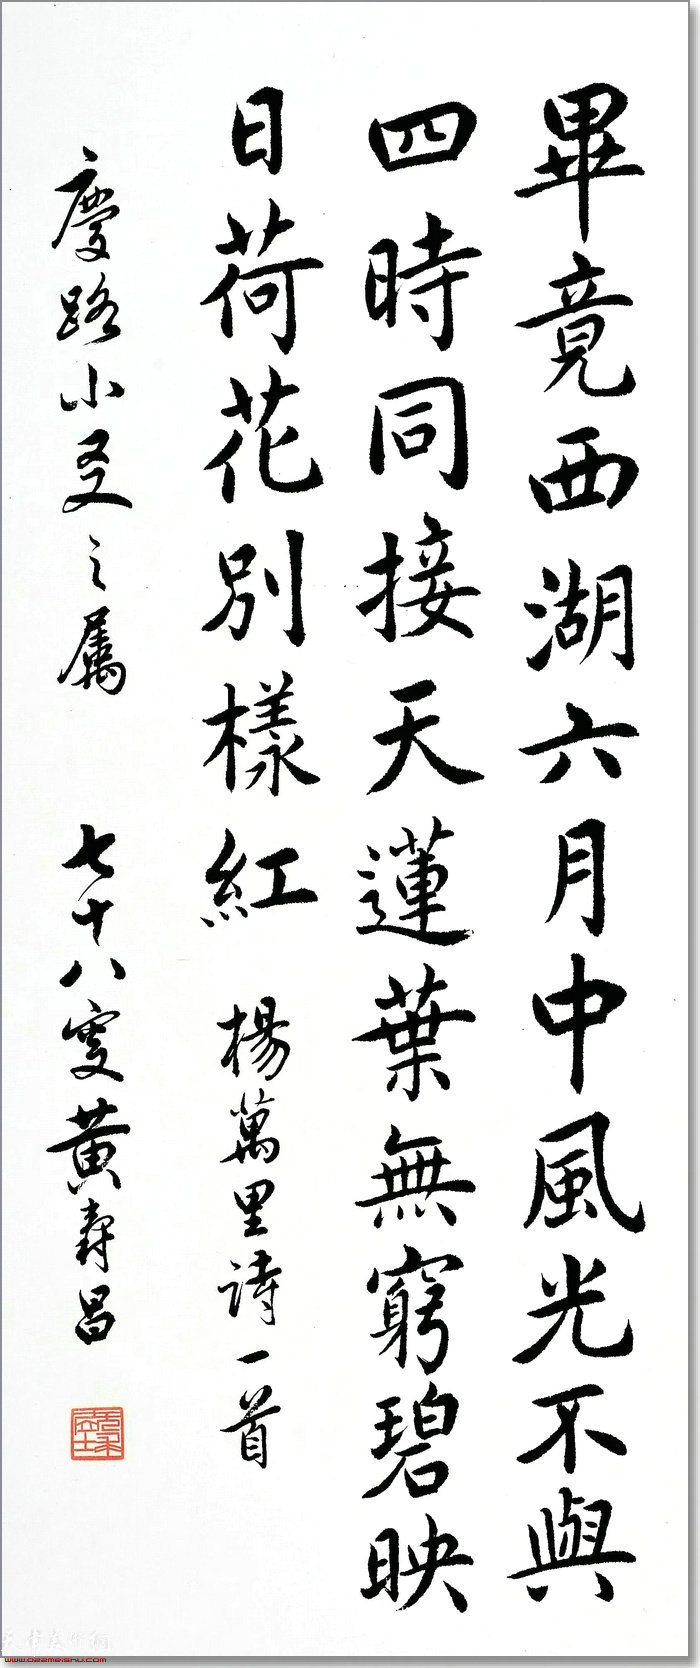 畢竟西湖六月中風光不與
四時同接天蓮葉無窮碧映
日荷花別樣紅 楊萬里詩一首
慶路小友之屬 七十八叟黃壽昌
www.022meishu.com